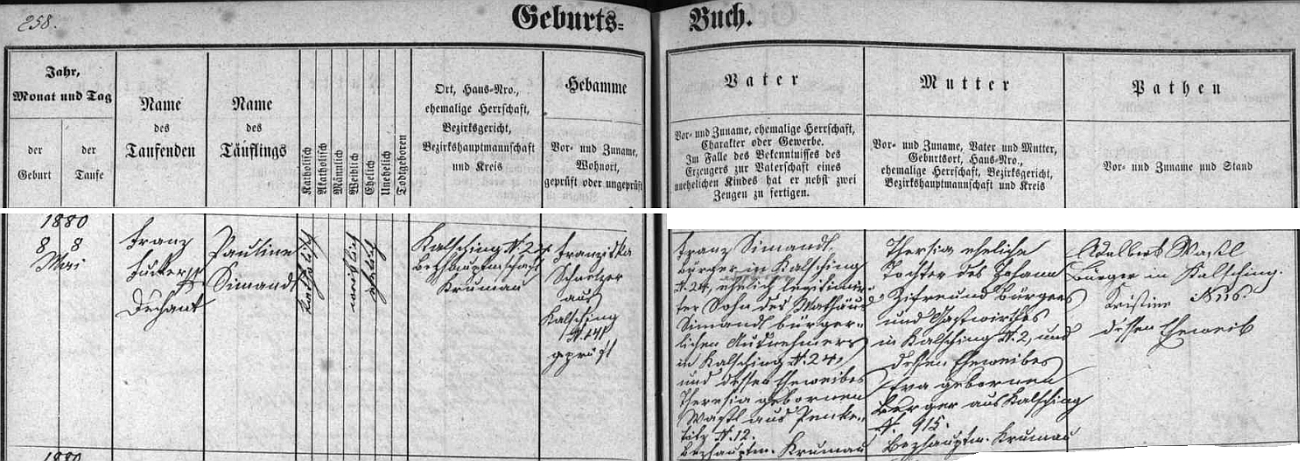 258.
Geburts-
Buch.
Jahr,
Monat und Tag
der
Geburt
der
Taufe
Name
des
Taufenden
Name
des
Täuflings
Katholisch
Akatholisch
Männlich
Weiblich
Ehelich
Unehelich
Todtgeboren
Ort, Haus-Nro.,
ehemalige Herrschaft,
Bezirksgericht,
Bezirkshauptmannschaft
und Kreis
Hebamme
Vor- und Zuname,
Wohnort,
geprüft oder ungeprüft
Vater
Vor- und Zuname, ehemalige Herrschaft,
Charakter oder Gewerbe.
Im Falle des Bekenntnisses des
Erzeugers zur Vaterschaft eines
unehelichen Kindes hat er nebst zwei
Zeugen zu fertigen.
Mutter
Vor- und Zuname, Vater und Mutter,
Geburtsort, Haus-Nro.,
ehemalige Herrschaft, Bezirksgericht,
Bezirkshauptmannschaft und Kreis
Pathen
Vor- und Zuname und Stand
1880
8 8
Mai
Franz
Dechant
Pauline
Simandl
katholisch
weiblich
ehelich
Kalsching N.
Bezhauptmschaft
Krumau
Franziska
aus
Kalsching
N. 141
geprüft
Franz Simandl
Bürger in Kalsching
N. 24, ehelich legitimir-
ter Sohn des Mathäus
Simandl bürger-
lichen Ausnehmers
in Kalsching N. 24,
und dessen Eheweibes
Theresia gebornen
Wastl aus Penke-
titz N. 12.
Bezhauptm. Krumau
Thersia eheliche
Tochter des Johann
Bürgers
und Gastwirthes
in Kalsching N. 2, und
dessen Eheweibes
Eva gebornen
Berger aus Kalsching
N.
Bezhauptm. Krumau
Adalbert Wastl
Bürger in Kalsching.
Kristine
dessen Eheweib
1880